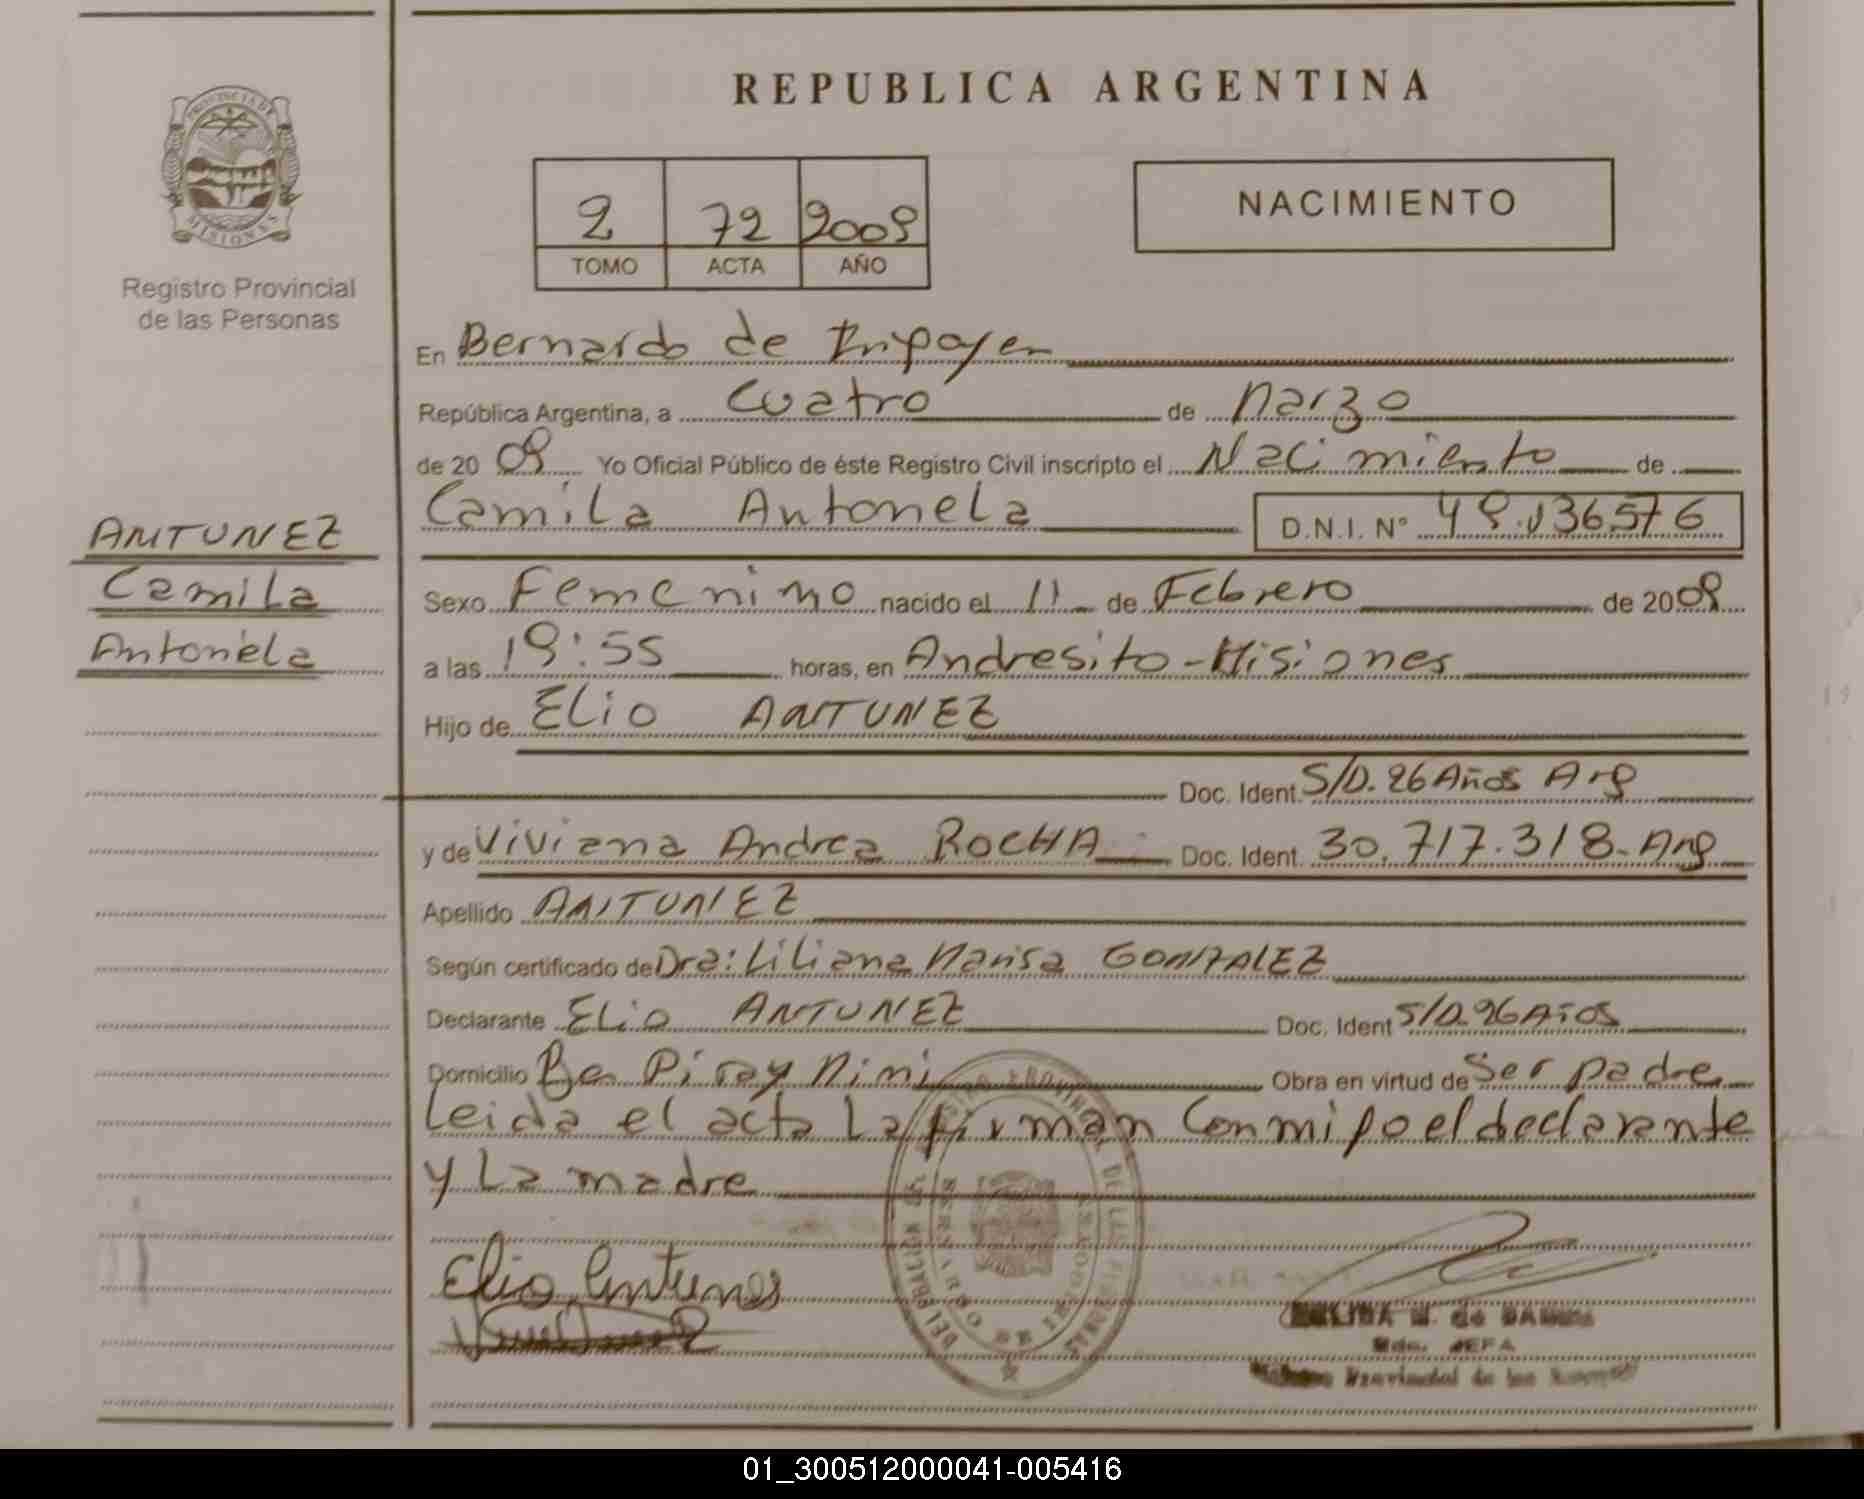 PROVINCIA DE
MISIONES
Registro Provincial
de las Personas
ANTUNEZ
Camila
Antonela
REPUBLICA ARGENTINA
2 72 2009
TOMO ACTA AÑO
NACIMIENTO
En Bernardo de Irigoyen
República Argentina, a Cuatro de Marzo
de 20 09 Yo Oficial Público de éste Registro Civil inscripto el Nacimiento de
Camila Antonela D.N.I. Nº 49.136576
Sexo Femenino nacido el 11 de Febrero de 2009
a las 19:55 horas, en Andresito - Misiones
Hijo de Elio ANTUNEZ
Doc. Ident. S/D. 26 Años Arg
y de Viviana Andrea ROCHA Doc. Ident. 30.717.318. Arg
Apellido ANTUNEZ
Según certificado de Dra: Liliana Marisa GONZALEZ
Declarante Elio ANTUNEZ Doc. Ident S/D. 26 Años
Domicilio Piray Mini Obra en virtud de Ser padre
Leida el acta La firman Conmigo el declarante
y La madre
Elio Antunes
01_300512000041-005416